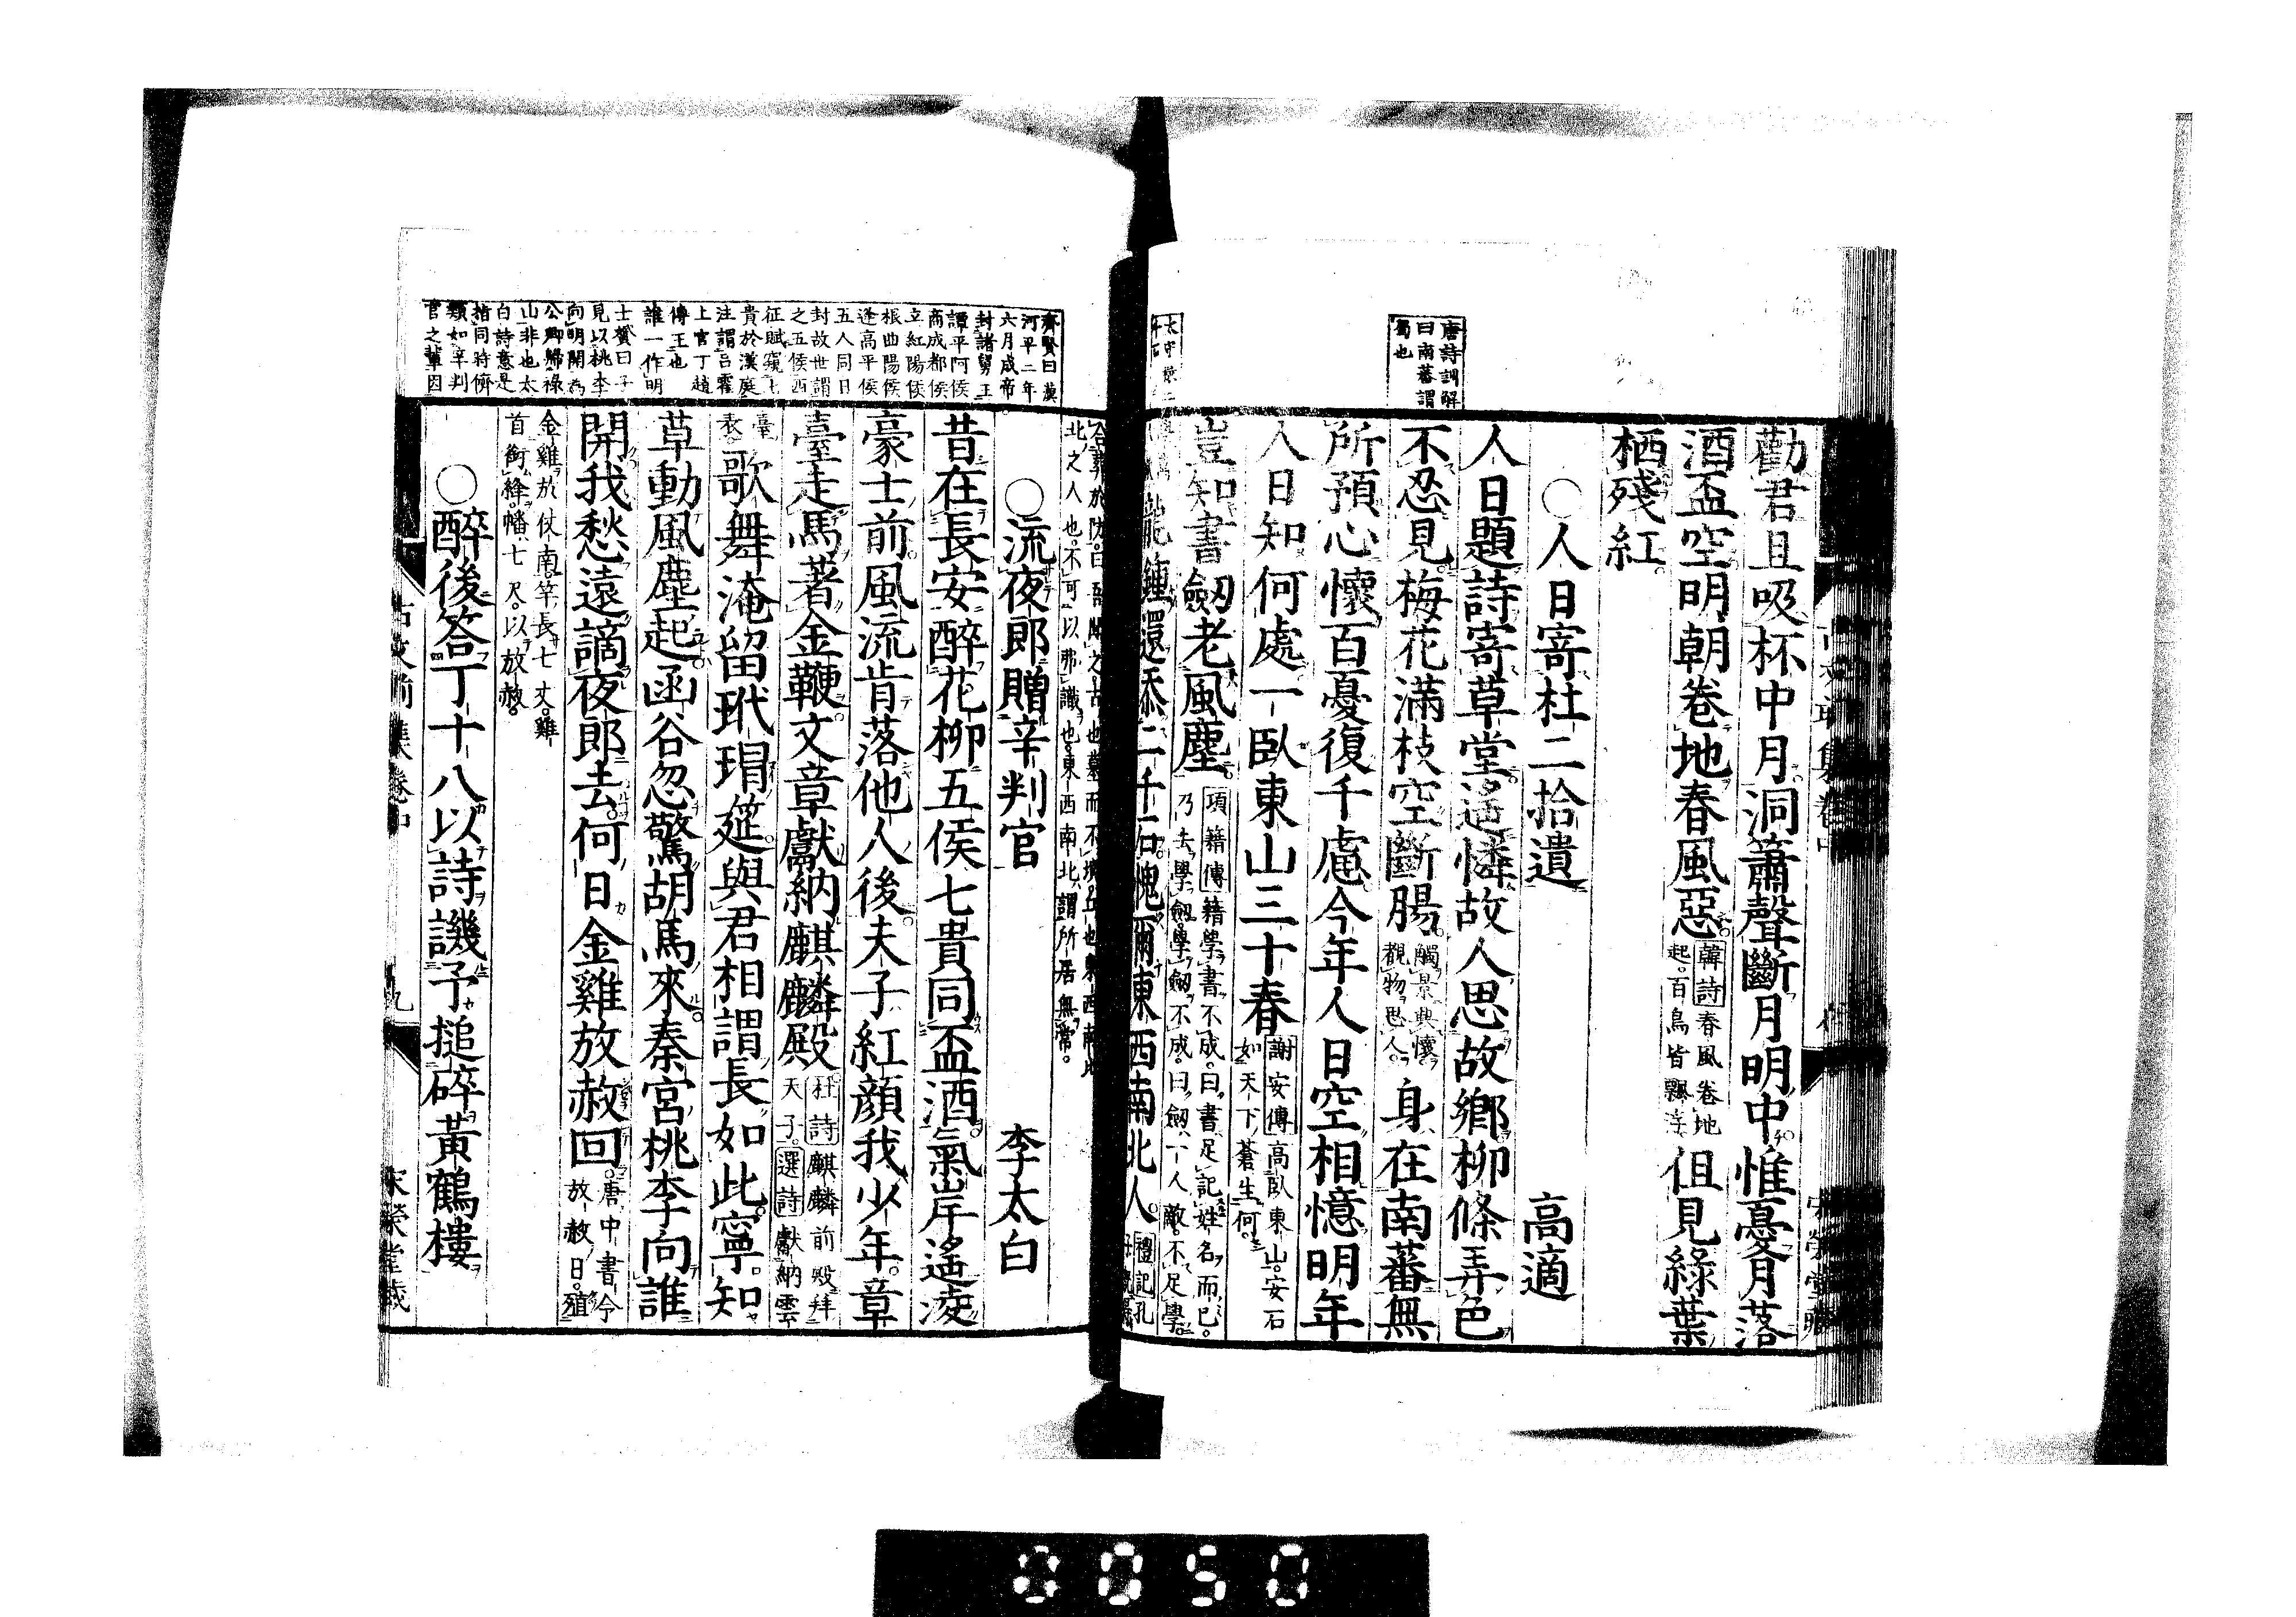 唐詩訓解
曰南蕃謂
蜀也
勸君且吸杯中月洞簫聲斷月明中惟憂月落
酒盃空明朝卷地春風惡韓詩春風卷地起百鳥皆飄浮但見綠葉
栖殘紅
○人日寄杜二拾遺 高適
人日題詩寄草堂遥憐故人思故鄉柳條弄色
不忍見梅花滿枝空斷腸觸景興懷覩物思人身在南蕃無
所預心懷百憂復千慮今年人日空相憶明年
人日知何處一臥東山三十春謝安傳高臥東山安石如天下蒼生何
豈知書劔老風塵項籍傳籍學書不成曰書足記姓名而已乃去學劔學劔不成曰劔一人敵不足學
龍鍾還忝二千石愧爾東西南北人禮記孔
合葬於防曰吾聞之古也墓而不墳丘也東西南北
北之人也不可以弗識也東西南北謂所居無常
齊賢曰漢
河平二年
六月成帝
封諸舅王
譚平阿侯
商成都侯
立紅陽侯
根曲陽侯
逢高平侯
五人同日
封故世謂
之五侯西
征賦窺七
貴於漢庭
注謂呂霍
上官丁趙
傅王也
誰一作明
士贇曰子
見以桃李
向明開為
公卿歸祿
山非也太
白詩意是
指同時儕
類如辛判
官之輩因
○流夜郎贈辛判官 李太白
昔在長安醉花柳五侯七貴同盃酒氣岸遙凌
豪士前風流肯落他人後夫子紅顏我少年章
臺走馬著金鞭文章獻納麒麟殿杜詩麒麟前殿拜天子選詩獻納雲
臺表歌舞淹留玳瑁筵與君相謂長如此寧知
草動風塵起函谷忽驚胡馬來秦宮桃李向誰
開我愁遠謫夜郎去何日金雞放赦回唐中書令放赦日殖
金雞於仗南竿長七丈雞
首銜絳幡七尺以放赦
○醉後答丁十八以詩譏予搥碎黃鶴樓
古文前集卷中 九 宋榮堂藏
0050